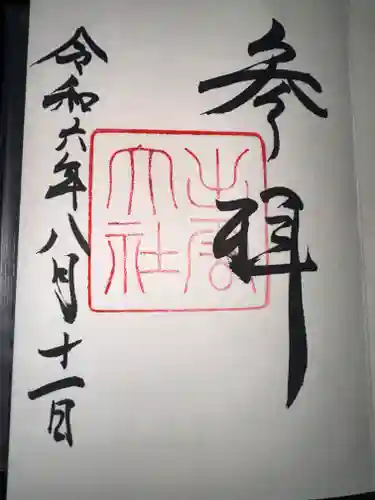 参拝
出雲大社
令和六年八月十一日